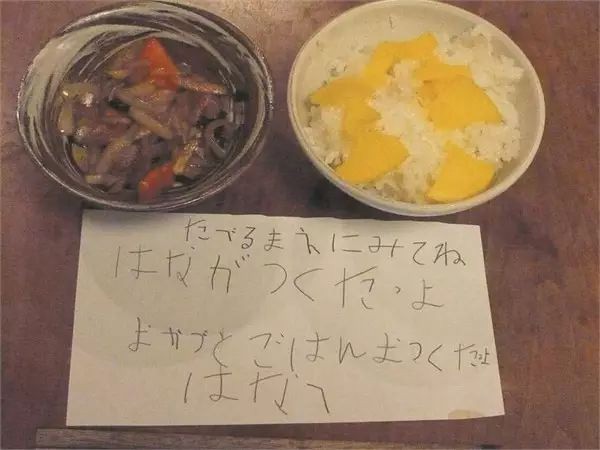 たべるまえにみてね
はながつくたっよ
おかずとごはんおつくたっよ
はなへ